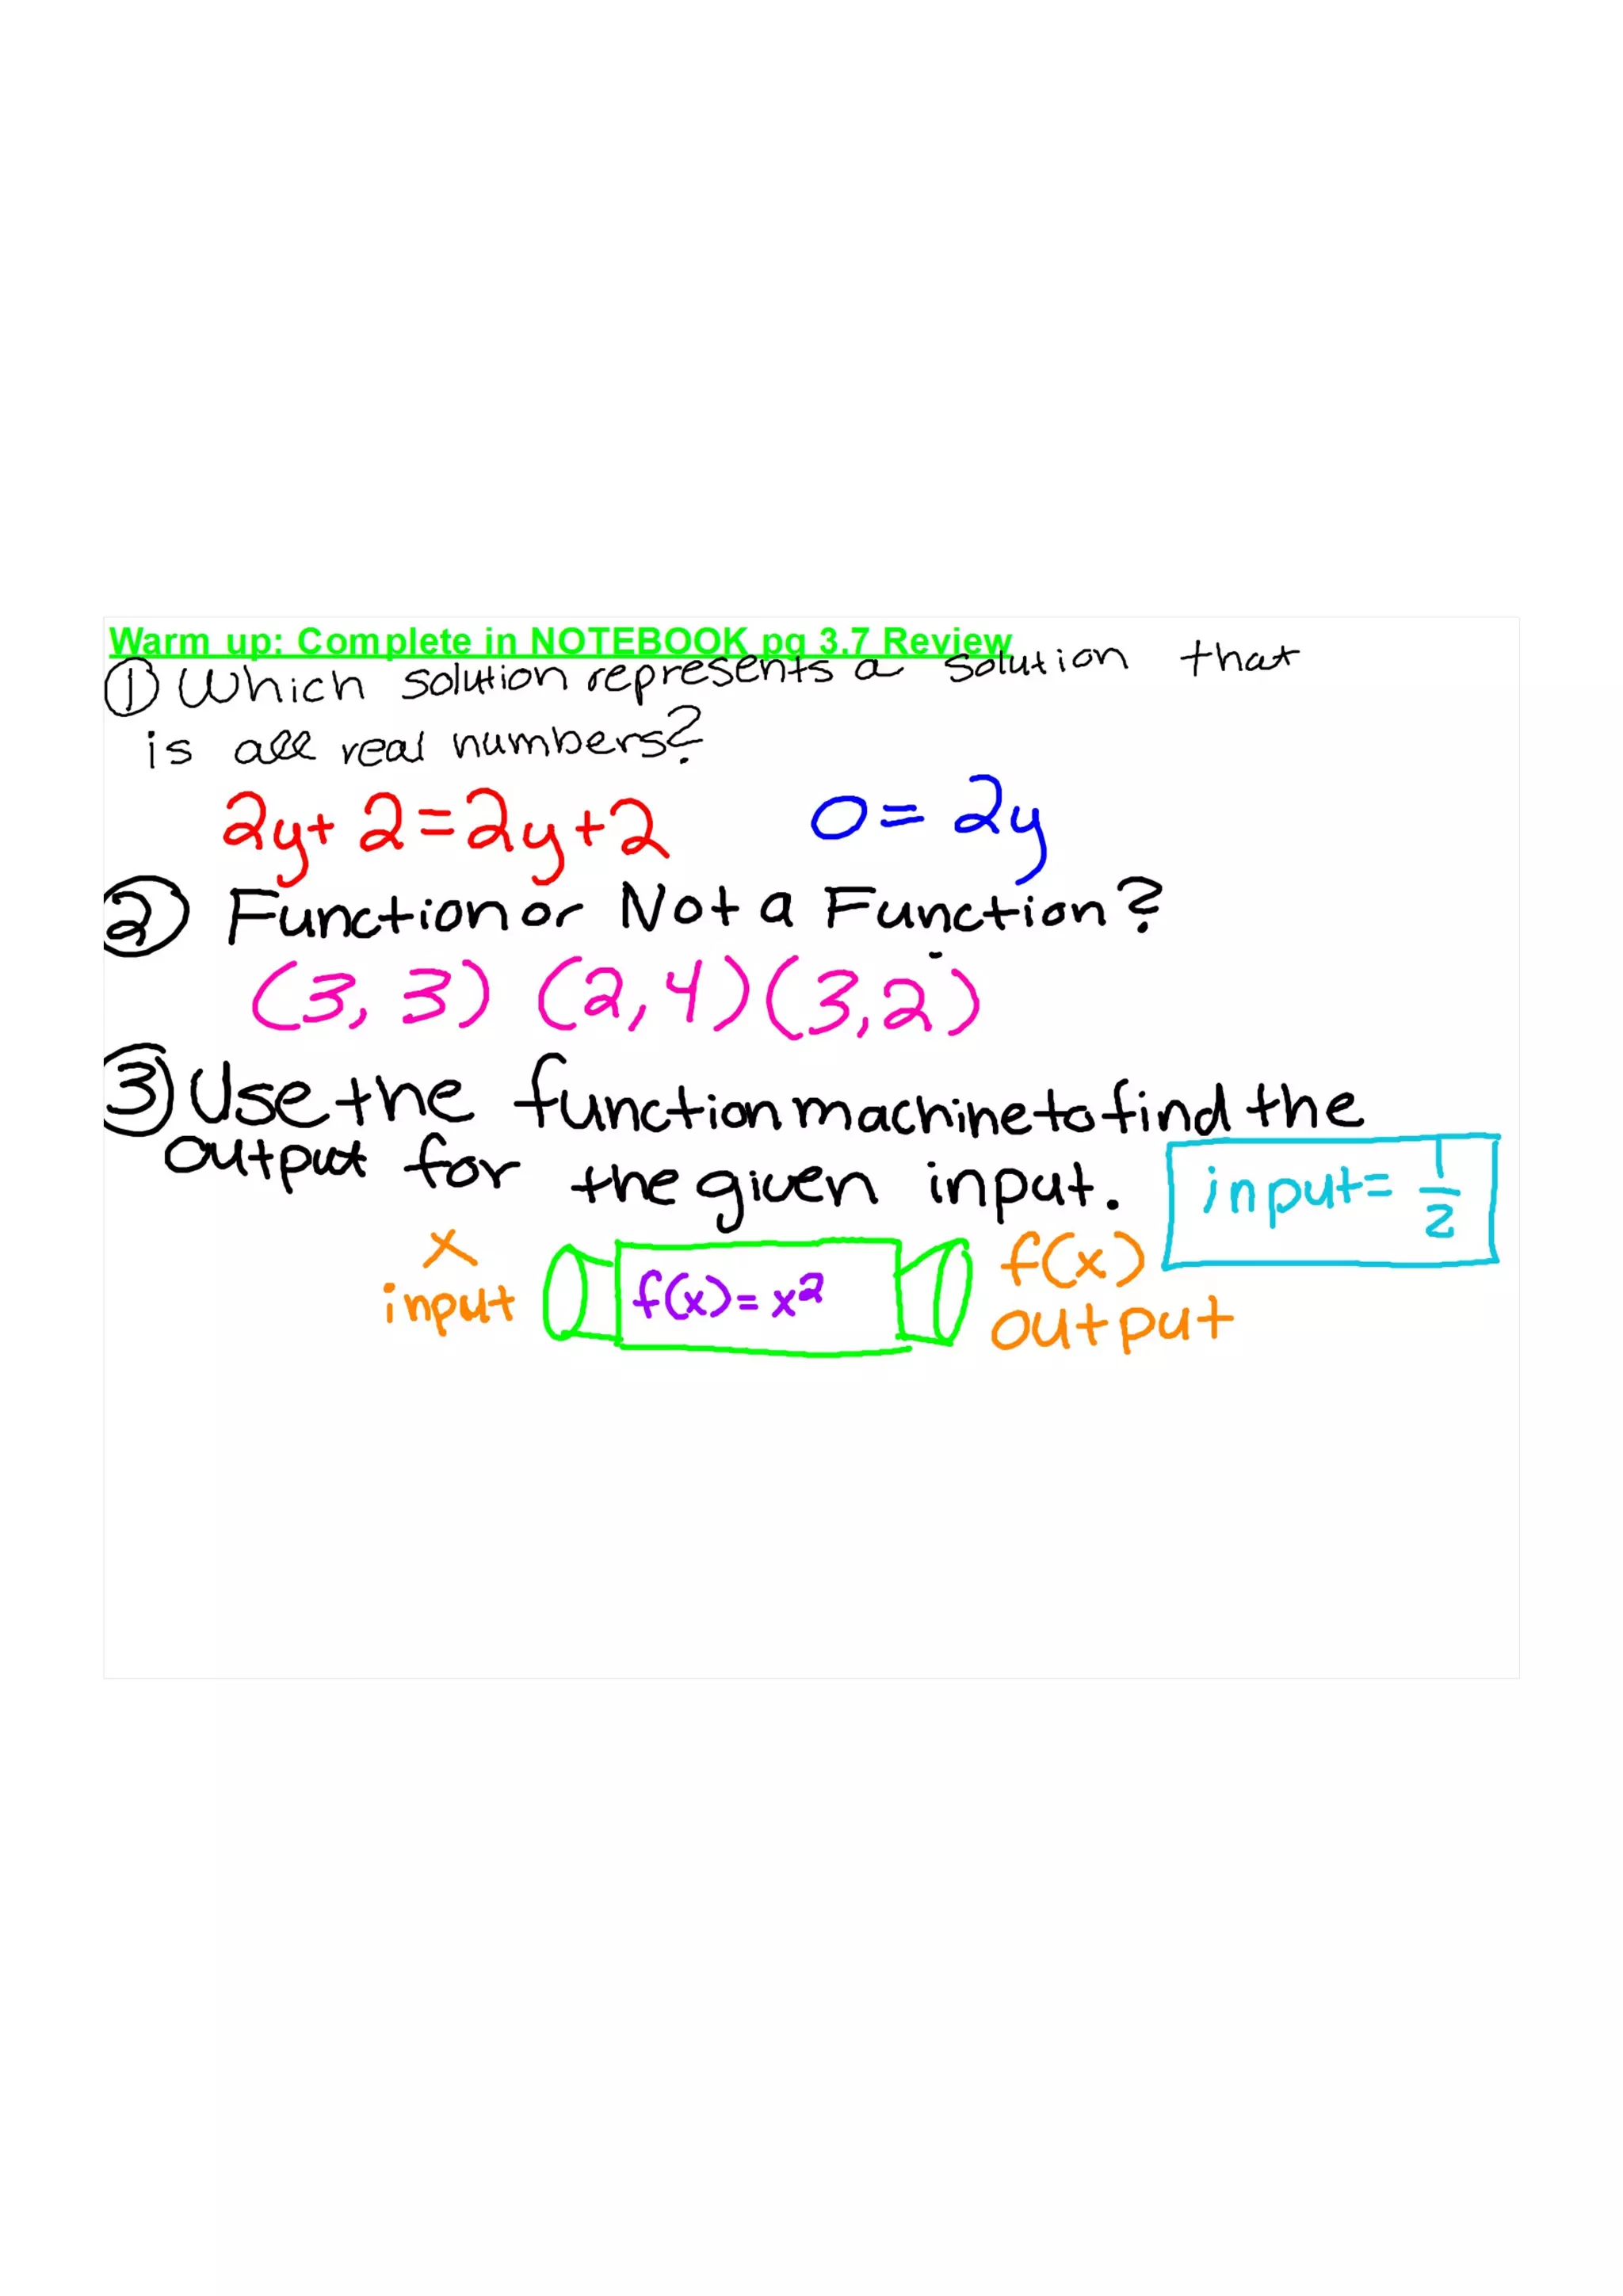 Warm up: Complete in NOTEBOOK pg 3.7 Review
① Which solution represents a solution that
is all real numbers?
2y+2=2y+2 0=2y
② Function or Not a Function?
(3,3) (2,4) (3,2)
③ Use the function machine to find the
output for the given input. input=1/2
x f(x)
input f(x)=x² output